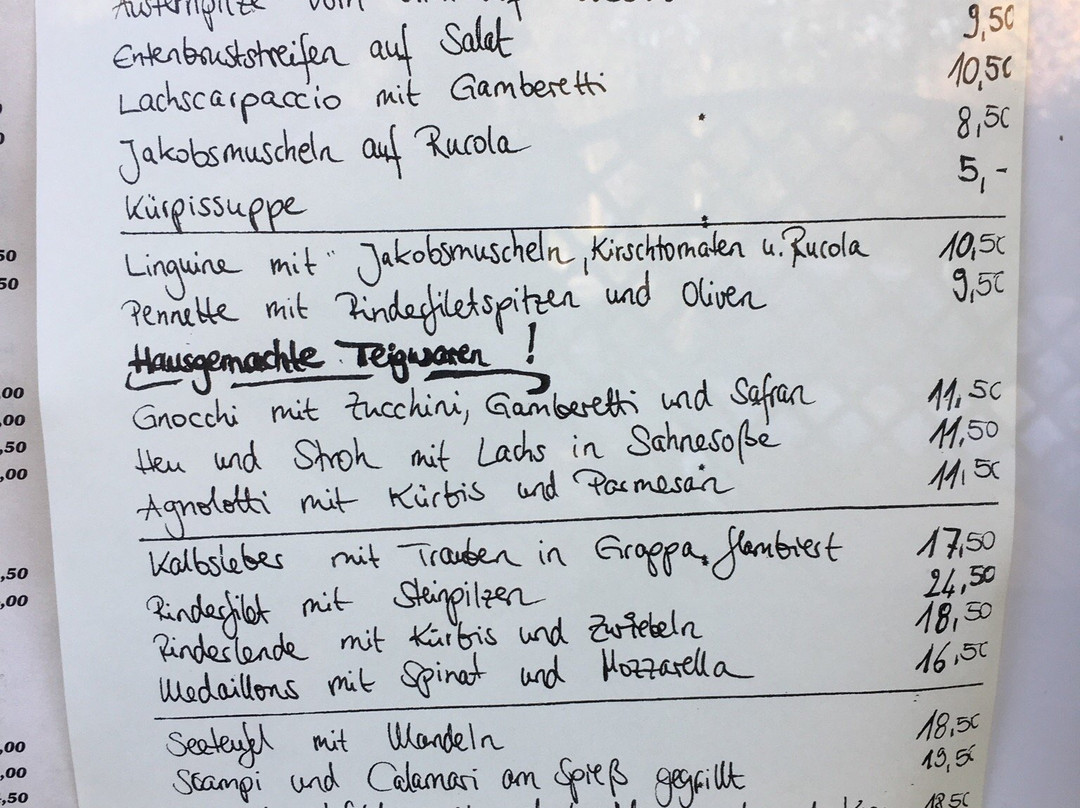 Austernpilze vom
Entenbruststreifen auf Salat 9,50
Lachscarpaccio mit Gamberetti 10,50
Jakobsmuscheln auf Rucola 8,50
Kürpissuppe 5,-
Linguine mit Jakobsmuscheln, Kirschtomaten u. Rucola 10,50
Pennette mit Rinderfiletspitzen und Oliven 9,50
Hausgemachte Teigwaren !
Gnocchi mit Zucchini, Gamberetti und Safran 11,50
Heu und Stroh mit Lachs in Sahnesoße 11,50
Agnolotti mit Kürbis und Parmesan 11,50
Kalbsleber mit Trauben in Grappa flambiert 17,50
Rinderfilet mit Steinpilzen 24,50
Rinderlende mit Kürbis und Zwiebeln 18,50
Medaillons mit Spinat und Mozzarella 16,50
Seeteufel mit Mandeln 18,50
Scampi und Calamari am Spieß gegrillt 19,50
18,50
50
50
,00
,00
,50
,00
,50
,00
,00
,00
,50